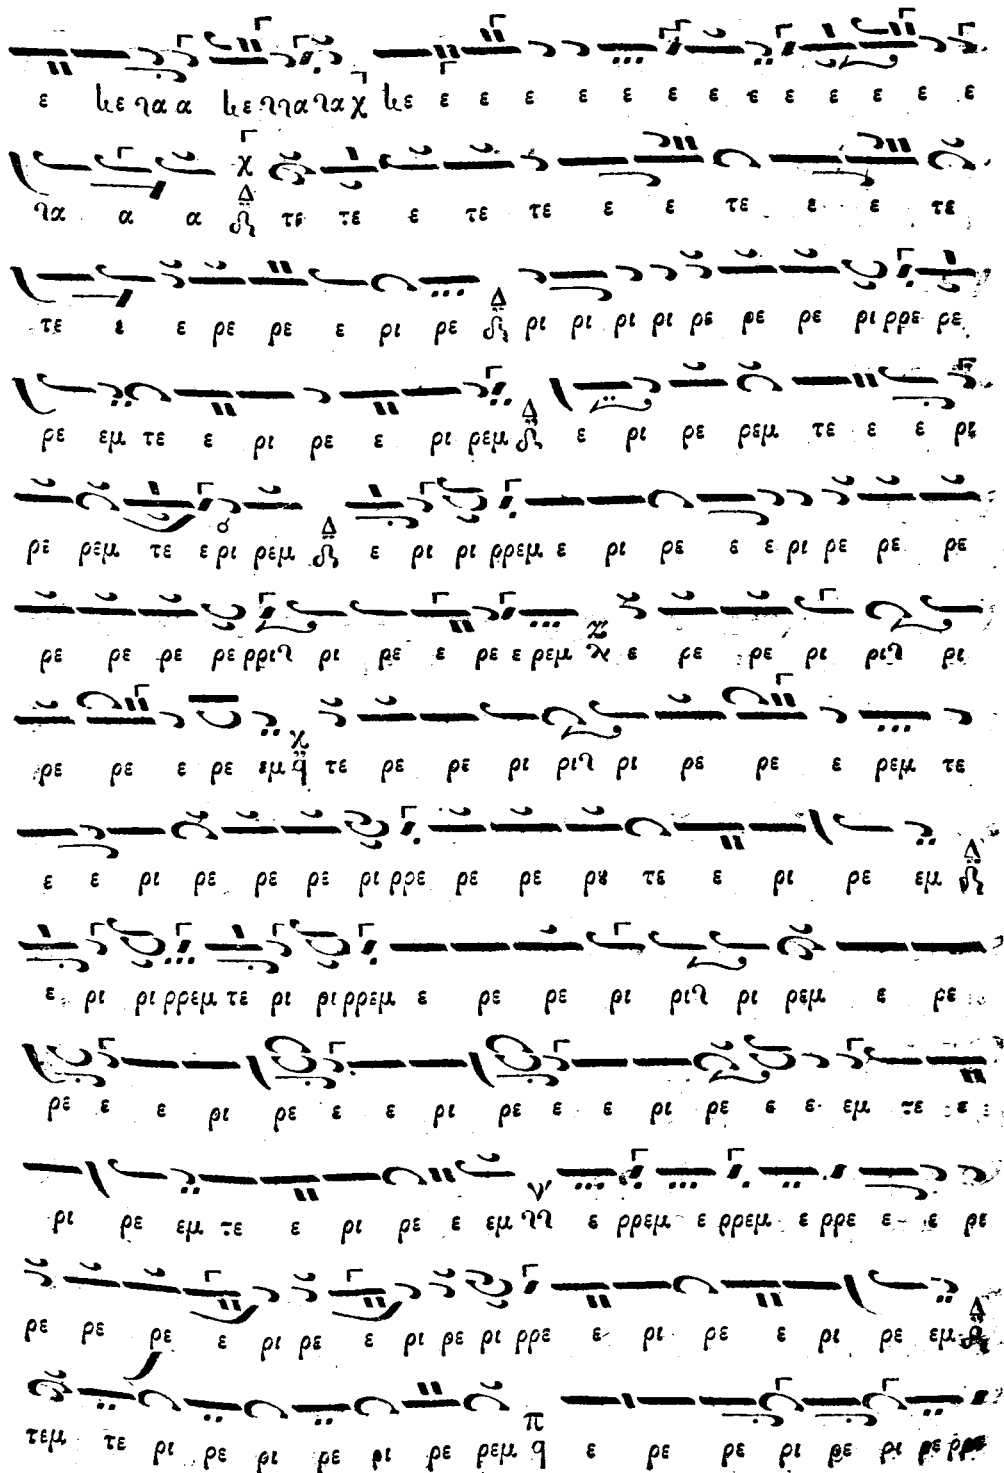 ε κε χα α κε χχα χα χ κε ε ε ε ε ε ε ε ε ε ε ε ε ε
χα α α χ Δ τε τε ε τε τε ε ε τε ε ε τε
τε ε ε ρε ρε ε ρι ρε Δ ρι ρι ρι ρι ρε ρε ρε ρι ρρε ρε
ρε εμ τε ε ρι ρε ε ρι ρεμ Δ ε ρι ρε ρεμ τε ε ε ρι
ρε ρεμ τε ε ρι ρεμ Δ ε ρι ρι ρρεμ ε ρι ρε ε ε ρι ρε ρε ρε
ρε ρε ρε ρε ρριχ ρι ρε ε ρε ε ρεμ ε ρε ρε ρι ριχ ρι
ρε ρε ε ρε εμ χ q τε ρε ρε ρι ριχ ρι ρε ρε ε ρεμ τε
ε ε ρι ρε ρε ρε ρι ρρε ρε ρε ρȣ τε ε ρι ρε εμ Δ
ε ρι ρι ρρεμ τε ρι ρι ρρεμ ε ρε ρε ρι ριχ ρι ρεμ ε ρε
ρε ε ε ρι ρε ε ε ρι ρε ε ε ρι ρε ε ε εμ τε ε
ρι ρε εμ τε ε ρι ρε ε εμ ν ε ρρεμ ε ρρεμ ε ρρε ε ε ρε
ρε ρε ρε ε ρι ρε ε ρι ρε ρι ρρε ε ρι ρε ε ρι ρε εμ Δ
τεμ τε ρι ρε ρι ρε ρι ρε ρεμ π q ε ρε ρε ρι ρε ρι ρε ρρε